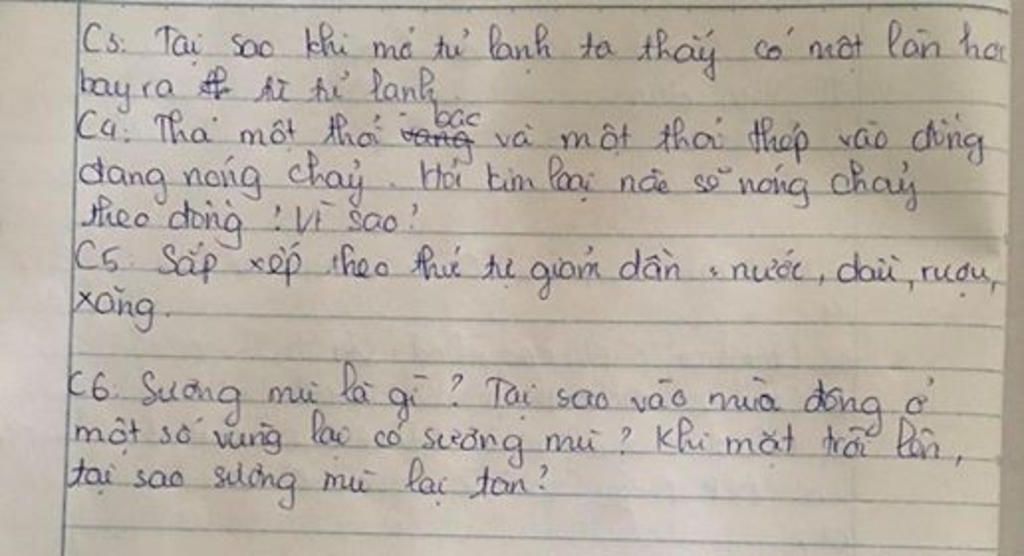 C3: Tại sao khi mở tủ lạnh ta thấy có một làn hơi
bay ra từ tủ lạnh
C4: Thả một thỏi bạc và một thỏi thép vào đồng
đang nóng chảy. Hỏi kim loại nào sẽ nóng chảy
theo đồng? Vì sao?
C5: Sắp xếp theo thứ tự giảm dần: nước, dầu, rượu,
xăng.
C6: Sương mù là gì? Tại sao vào mùa đông ở
một số vùng lại có sương mù? Khi mặt trời lên,
tại sao sương mù lại tan?